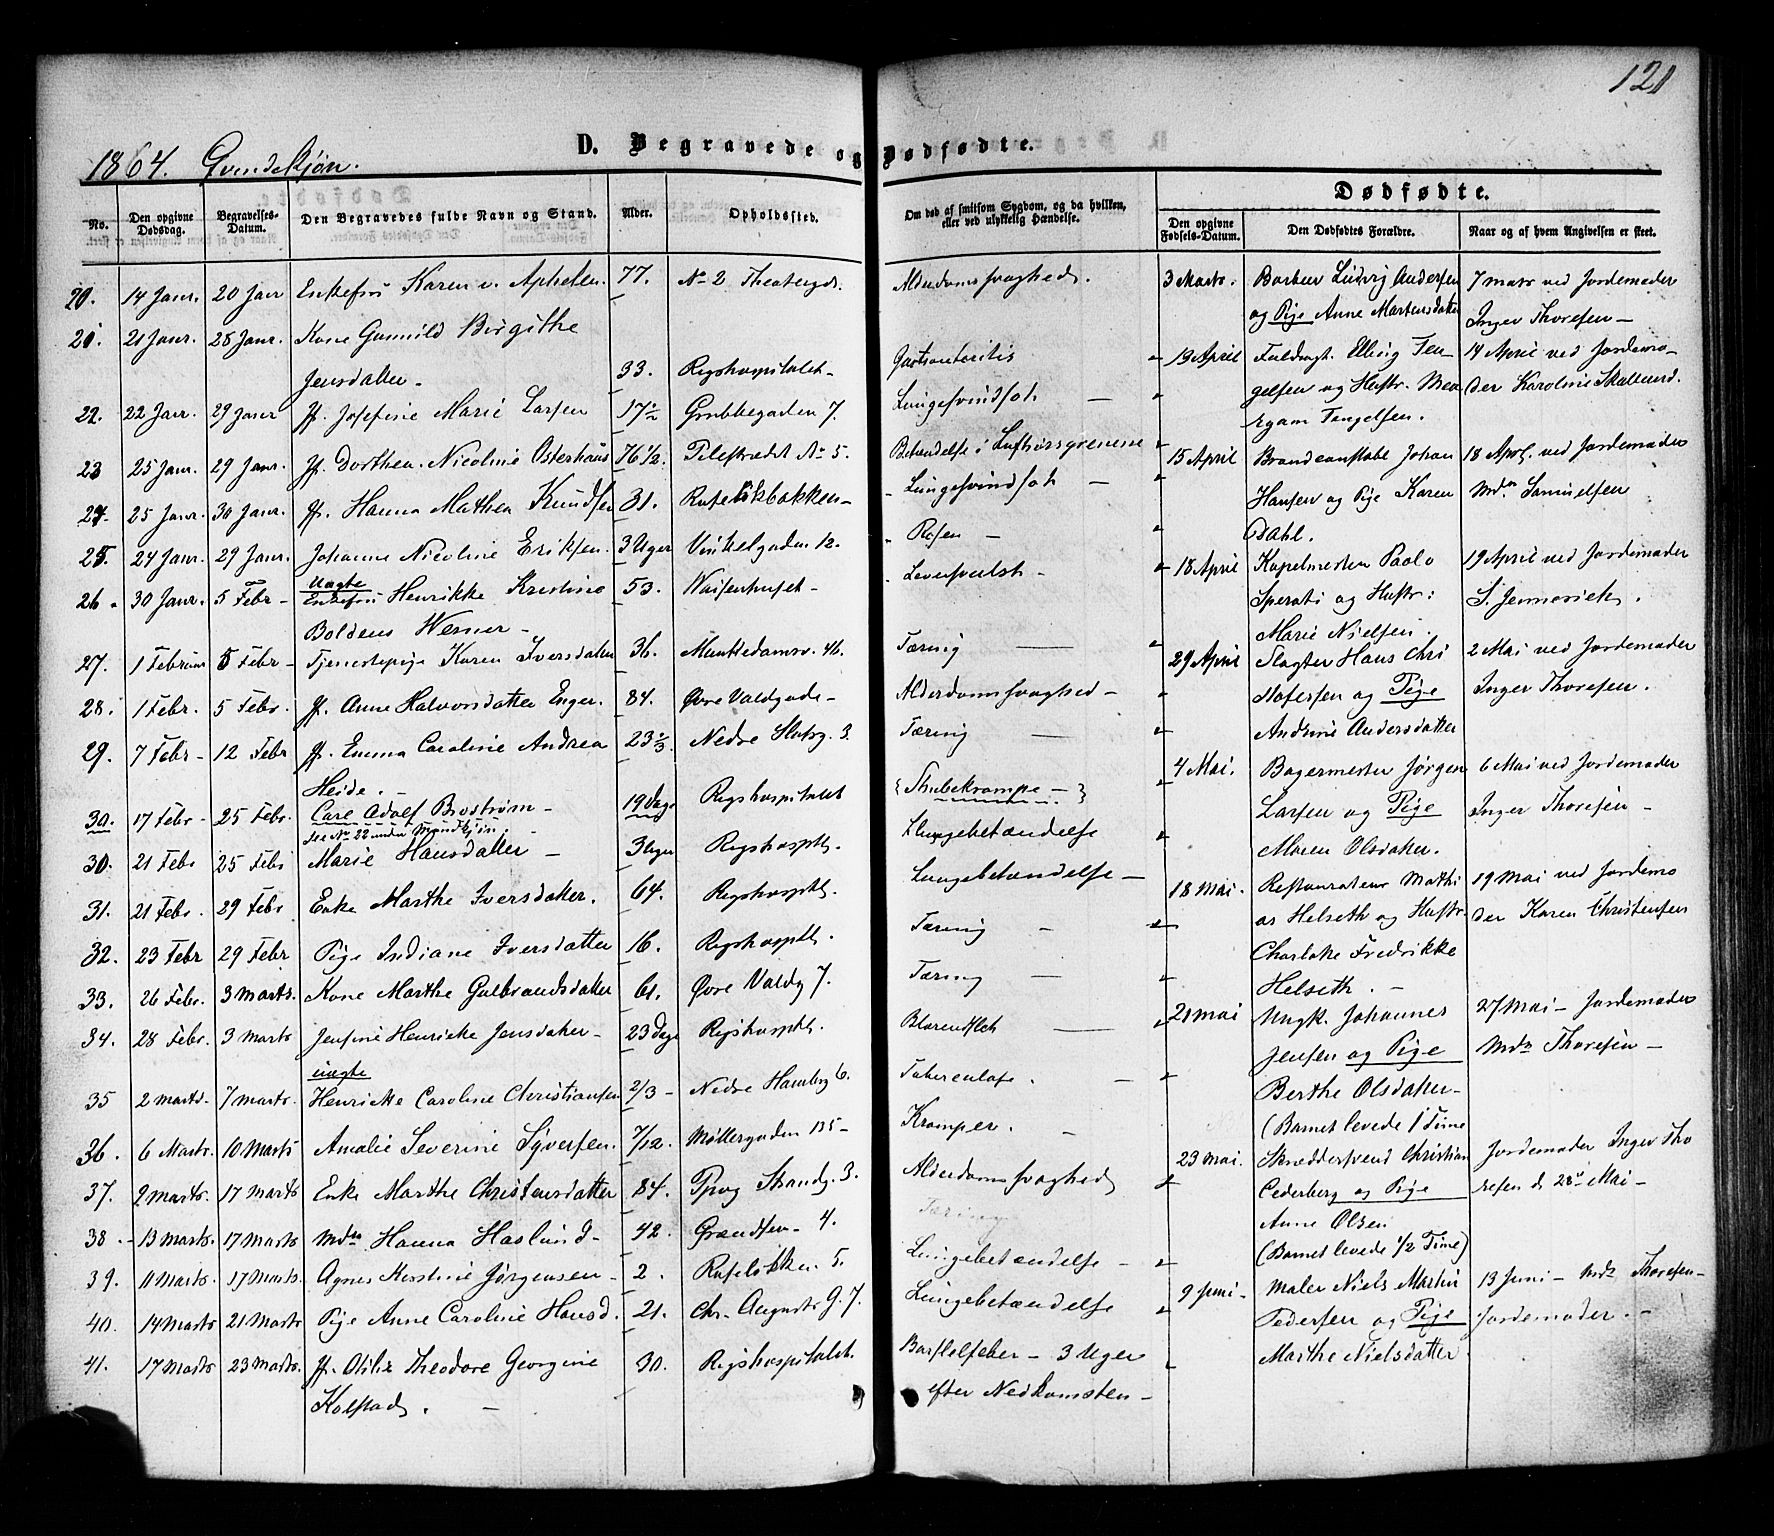 121
1864. Qvindekjøn.
D. Begravede og Dødfødte.
No.
Den opgivne Dødsdag.
Begravelses-Datum.
Den Begravedes fulde Navn og Stand.
Alder.
Opholdssted.
Om død af smitsom Sygdom, og da hvilken, eller ved ulykkelig Hændelse.
Dødfødte.
Den opgivne Fødsels-Datum.
Den Dødfødtes Forældre.
Naar og af hvem Angivelsen er skeet.
20. 14 Janr. 20 Janr Enkefru Karen v. Aphelen. 77. No 2 Theatergd. Alderdomssvaghed.
21. 21 Janr. 28 Janr. Kone Gunnild Birgithe
Jensdatter - 33. Rigshospitalet -
22. 22 Janr. 29 Janr Jf. Josefine Marie Larsen 17½ Grubbegaden 7. Lungesvindsot -
23 25 Janr. 29 Janr. Jf. Dorthea Nicoline Osterhaus 76 1/2. Pilestrædet No 5. Betændelse i Luftrørsgrenene
24. 25 Janr. 30 Janr. Jf. Hanna Mathea Knudsen 31. Ruseløkbakken - Lungesvindsot -
25. 24 Janr. 29 Janr. Johanne Nicoline Eriksen. 3 Uger Vinkelgaden 12. Rosen -
uægte
26. 30 Janr. 5 Febr - Enkefru Henrikke Kristine 53. Waisenhuset - Leversvulst -
Boldens Werner -
27. 1 Februar 5 Febr - Tjenestepige Karen Iversdatter 36. Munkedamsv. 46. Tæring -
28. 1 Febr. 5 Febr. Jf. Anne Halvorsdatter Enger. 84. Øvre Voldgade - Alderdomssvaghed -
29. 7 Febr - 12 Febr Jf. Emma Caroline Andrea 23 1/3. Nedre Slotsg. 3. Tæring -
Heide. -
30. 17 Febr - 25 Febr. Carl Adolf Broström - 19 Dage Rigshospitalet {Strubekrampe -}
see No 22 under Mandkjøn.
30. 21 Febr 25 Febr Marie Hansdatter - 3 Uger Rigshosptl. Lungebetændelse
31. 21 Febr. 29 Febr Enke Marthe Iversdatter. 64. Rigshosptl. Lungebetændelse -
32. 23 Febr 29 Febr Pige Indiane Iversdatter 16. Rigshosptl. Tæring -
33. 26 Febr. 3 Marts. Kone Marthe Gulbrandsdatter 61. Øvre Voldg 7. Tæring -
34. 28 Febr. 3 Marts Jensine Henrikke Jensdatter - 23 Dage Rigshosptl.
uægte
35 2 Marts - 7 Marts. Henrikke Caroline Christiansen 2/3 - Nedre Hamborg 6.
36. 6 Marts. 10 Marts Amalie Severine Syversen. 7/12. Møllergaden 135 - Kramper. -
37. 9 Marts. 17 Marts Enke Marthe Christensdatter 84. Pipvg Strandg. 3. Alderdomssvaghed
38 - 13 Marts. 17 Marts Mdm Hanna Haslund - 42. Grændsen - 4. Tæring
39. 11 Marts. 17 Marts. Agnes Kirstine Jørgensen - 2. Ruseløkken 5. Lungebetændelse -
40. 14 Marts 21 Marts Pige Anne Caroline Hansd. 21. Chr. Augusts G. 7. Lungebetændelse
41. 17 Marts 23 Marts. Jf. Otilie Theodore Georgine 30. Rigshospitalet. Barselfeber - 3 Uger
Kolstad. - efter Nedkomsten -
3 Marts. Barber Ludvig Andersen 7 Mars ved Jordemoder
og Pige Anne Mortensdatter Inger Thoresen -
19 April Fuldmgt. Ellevig Ten- 14 April ved Jordemo-
gelsen og Hustr. der Karoline
Tengelsen.
15 April Brandconstabl Johan 18 Apr. ved Jordemoder
Hansen og Pige Karen Mdm. Samuelsen
Dahl.
18 April Kapelmester Paolo 19 April ved Jordemoder
Sperati og Hustr: S. Jennerich.
Marie Nielsen.
29 April Slagter Hans Chri 2 Mai ved Jordemoder
stofersen og Pige Inger Thoresen.
Andrine Andersdatter
4 Mai. Bagermester Jørgen 6 Mai ved Jordemoder
Larsen og Pige Inger Thoresen -
Maren Olsdatter.
18 Mai. Restaurateur Mathi 19 Mai ved Jordemo
as Helseth og Hustr. der Karen Christensen
Charlotte Fredrikke
Helseth. -
21 Mai Ungk. Johannes 27 Mai - Jordemoder
Jensen og Pige Mdm Thoresen -
Berthe Olsdatter -
(Barnet levede 1 Time
23 Mai. Skræddersvend Christian Jordemoder Inger Tho
Cederberg og Pige resen d. 28 Mai -
Anne Olsen
(Barnet levede 1/2 Time)
9 Juni - Maler Niels Martin 13 Juni - Mdm Thoresen -
Pedersen og Pige Jordemoder. -
Marthe Nielsdatter.